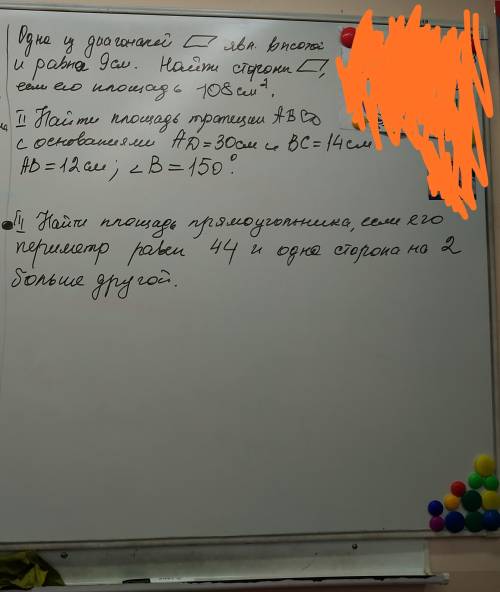 Одна из диагоналей ▱ явл. высотой
и равна 9см. Найти стороны ▱,
если его площадь 108 см².
II Найти площадь трапеции ABCD
с основаниями AD=30см и BC=14см
AB=12см; ∠B=150°.
III Найти площадь прямоугольника, если его
периметр равен 44 и одна сторона на 2
больше другой.